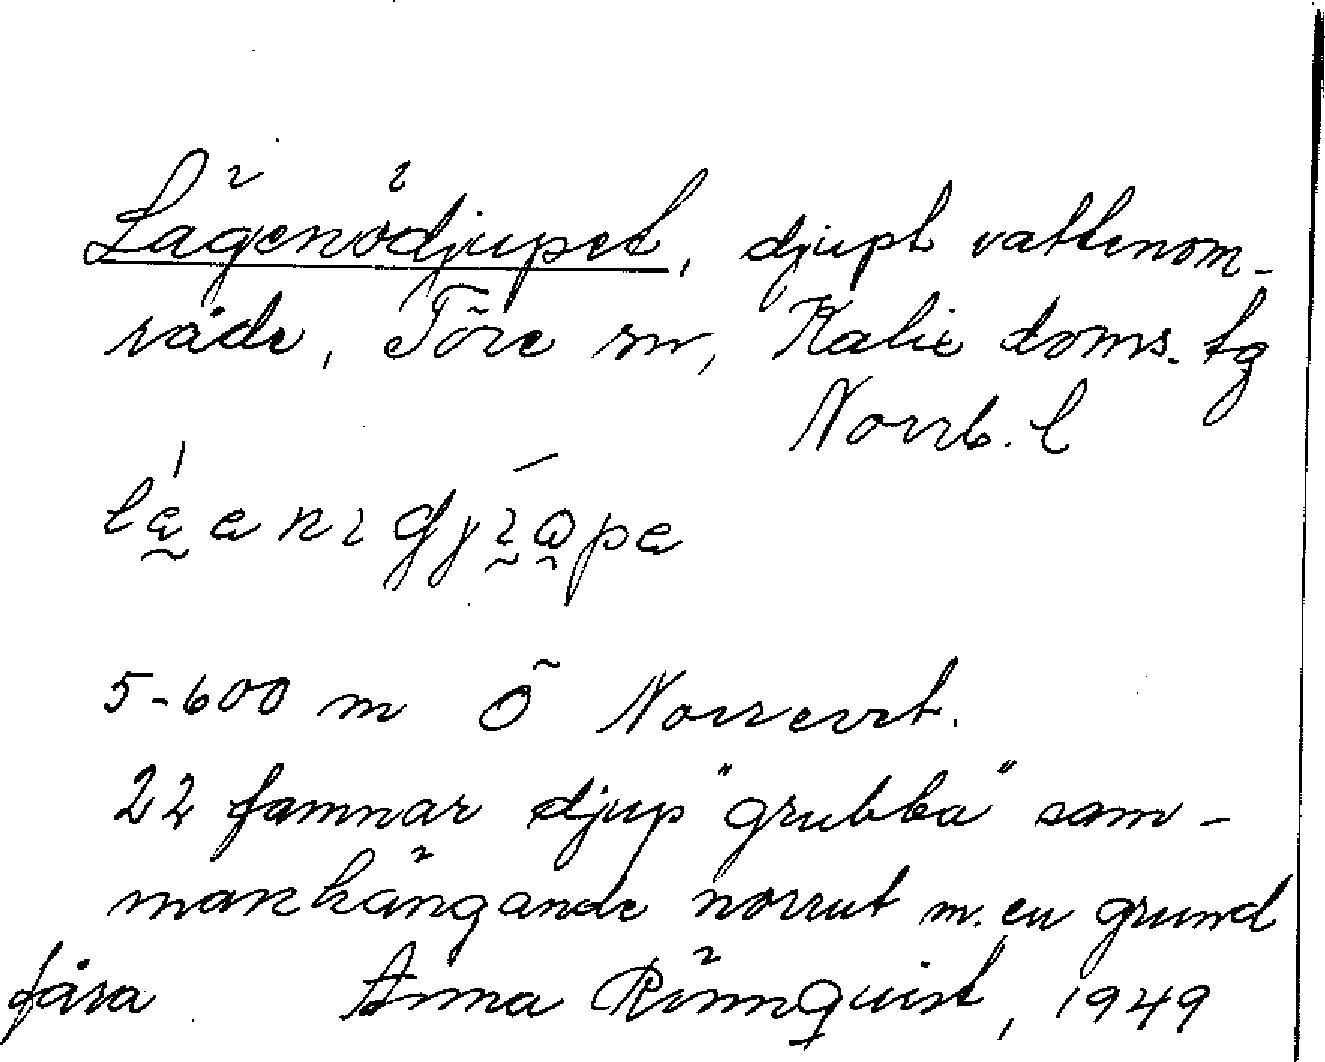 Lägenödjupet, djupt vattenom-
råde, Töre sn, Kalix doms. tg
Norrb. l
5-600 m Ö Norrevrt.
22 famnar djup "grubba" sam-
manhängande norrut m. en grund
fåra Anna Rönnquist, 1949